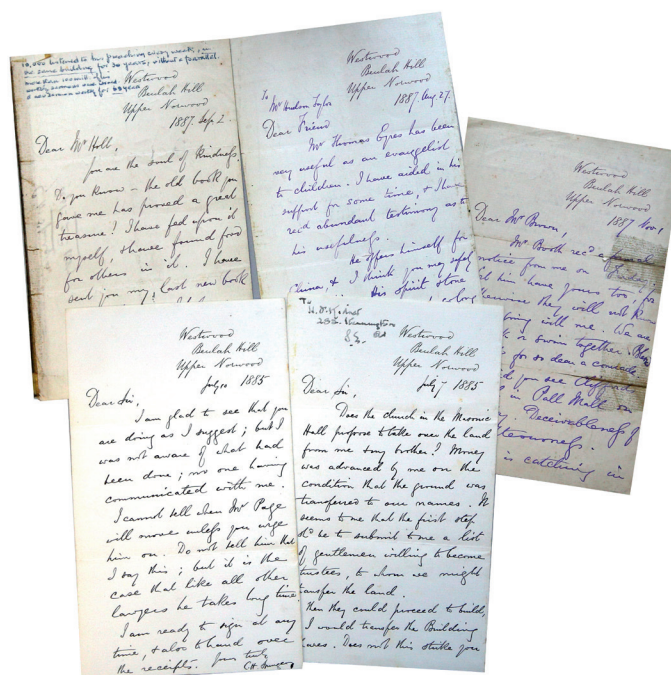 10,000 listened to his preaching every week, in
the same building for 30 years, without a parallel.
Westwood
Beulah Hill
Upper Norwood
1887. Sep. 2
Dear Mr Holl,
You are the soul of kindness.
Do you know – the old book you
gave me has proved a great
treasure! I have fed upon it
myself, & have found food
for others in it. I have
sent you my last new book
Westwood
Beulah Hill
Upper Norwood
1887. Aug. 27.
To
Mr Hudson Taylor
Dear Friend
Mr Thomas Eyres has been
very useful as an evangelist
to children. I have aided in his
support for some time, & I have
rec'd abundant testimony as to
his usefulness.
He offers himself for
China, & I think you may safely
His spirit
Westwood
Beulah Hill
Upper Norwood
1887 Nov. 1
Dear Mr Brown,
Mr Booth rec'd a
notice from me on Friday;
him have yours too; for
otherwise they will not know
being with me. We are
or swim together.
for so dear a comrade.
you see Clifford
in Pall Mall on
Deceivableness of
is catching in
Westwood
Beulah Hill
Upper Norwood
July 10 1885
Dear Sir,
I am glad to see that you
are doing as I suggest; but I
was not aware of what had
been done; no one having
communicated with me.
I cannot tell when Mr Page
will move unless you urge
him on. Do not tell him that
I say this; but it is the
case that like all other
lawyers he takes long time.
I am ready to sign at any
time, & also to hand over
the receipts. Yours truly
To
Westwood
Beulah Hill
Upper Norwood
July 7 1885
Dear Sir,
Does the church in the Masonic
Hall propose to take over the land
from me & my brother? Money
was advanced by me on the
condition that the ground was
transferred to our names. It
seems to me that the first step
sh'd be to submit to me a list
of gentlemen willing to become
trustees, to whom we might
transfer the land.
Then they could proceed to build,
I would transfer the Building
Does not this strike you